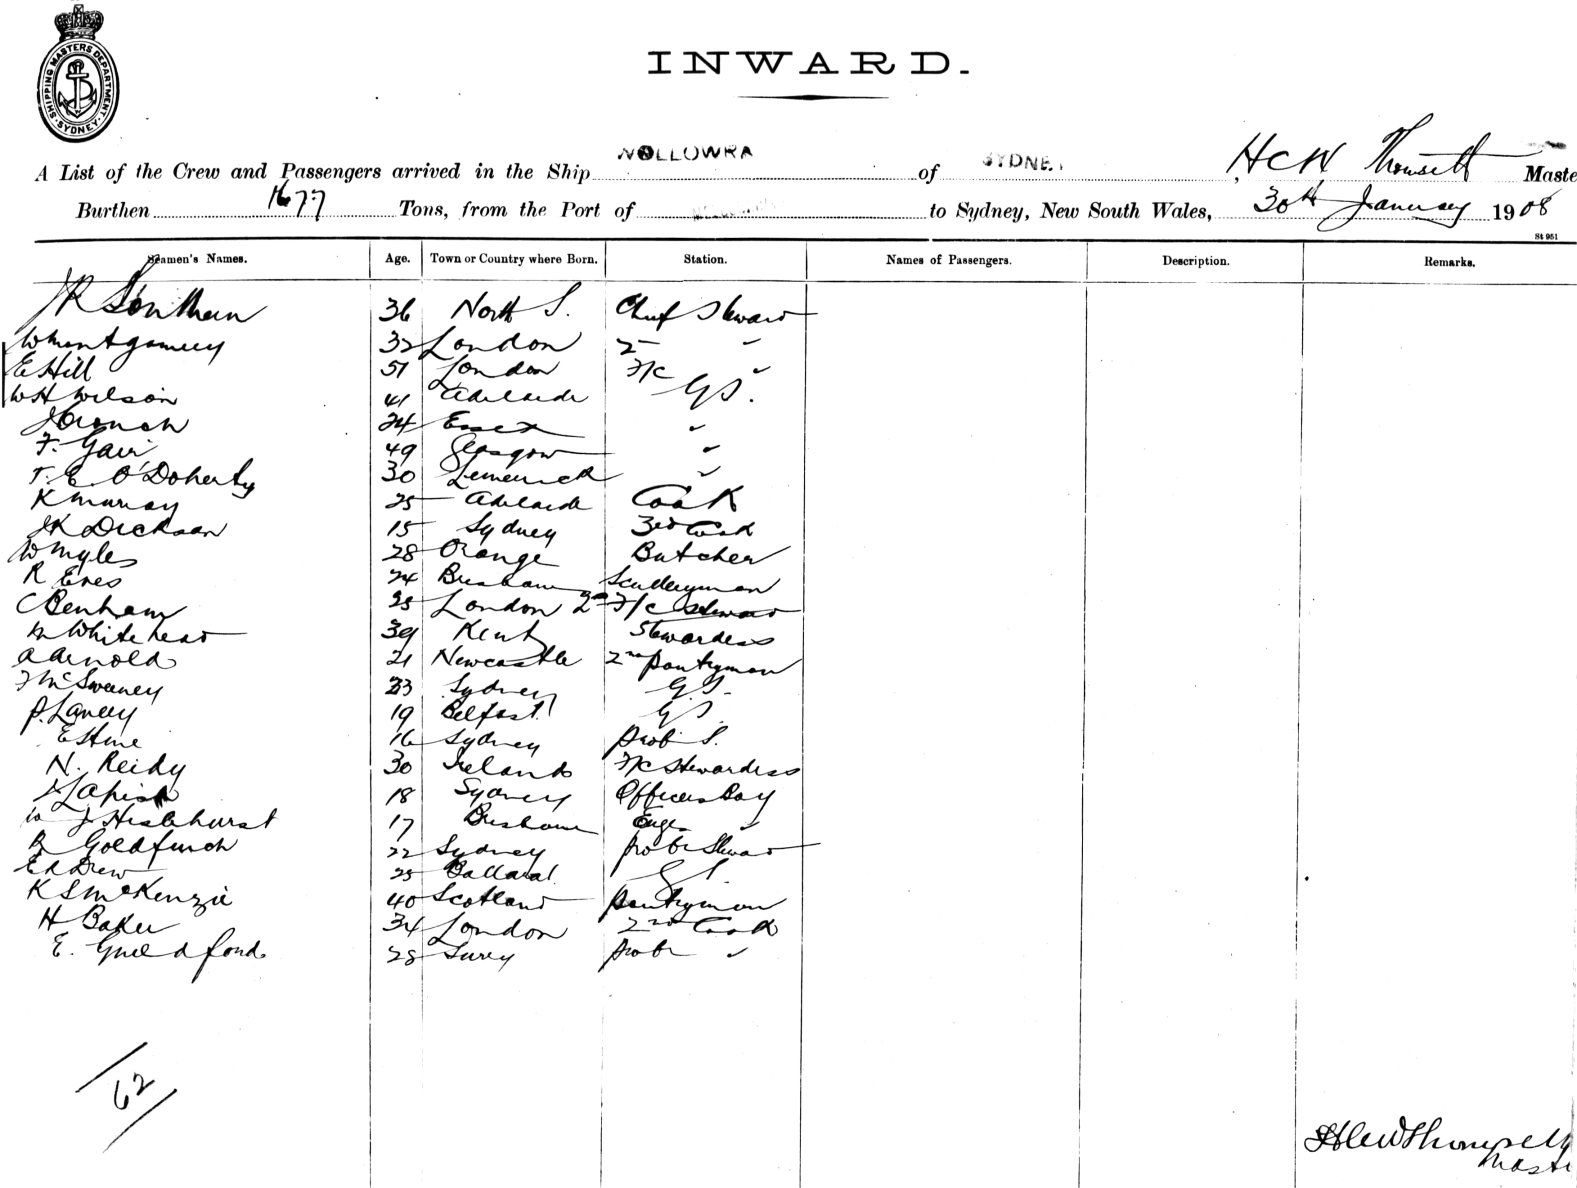 SHIPPING MASTERS DEPARTMENT. SYDNEY.
INWARD.
A List of the Crew and Passengers arrived in the Ship WOLLOWRA of SYDNEY HCW Thomsett Maste
Burthen 1677 Tons, from the Port of to Sydney, New South Wales, 30th January 1908
St 951
Seamen's Names. Age. Town or Country where Born. Station. Names of Passengers. Description. Remarks.
36 North S. Chief Steward
W Montgomery 32 London 2 "
E Hill 51 London F/c "
W H Wilson 41 Adelaide GS.
J Cronch 24 Essex "
F. Gair 49 Glasgow "
T. E O'Doherty 30 Limerick "
K Murray 25 Adelaide Cook
JK Dickson 15 Sydney 3rd Cook
W Myles 28 Orange Butcher
R Eves 24 Brisbane Sculleryman
C Benham 25 London 2nd F/c Steward
M Whitehead 39 Kent Stewardess
A Arnold 21 Newcastle 2nd pantryman
F McSweeney 23 Sydney G.S.
P. Lavery 19 Belfast GS
E Hine 16 Sydney prob S.
N. Reidy 30 Ireland F/c Stewardess
18 Sydney Officers Boy
W J Hislehurst 17 Brisbane Engs "
R Goldfinch 22 Sydney probr Steward
Ed Drew 25 Ballarat GS.
K S McKenzie 40 Scotland pantryman
H Baker 34 London 2nd Cook
E. Guildford 28 Surry probr "
62
HCW Thompsett
Maste